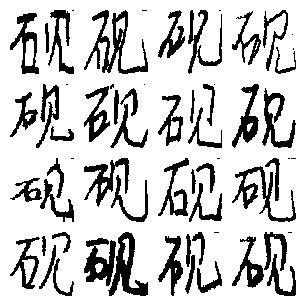 砚砚砚砚
砚砚砚砚
砚砚砚砚
砚砚砚砚